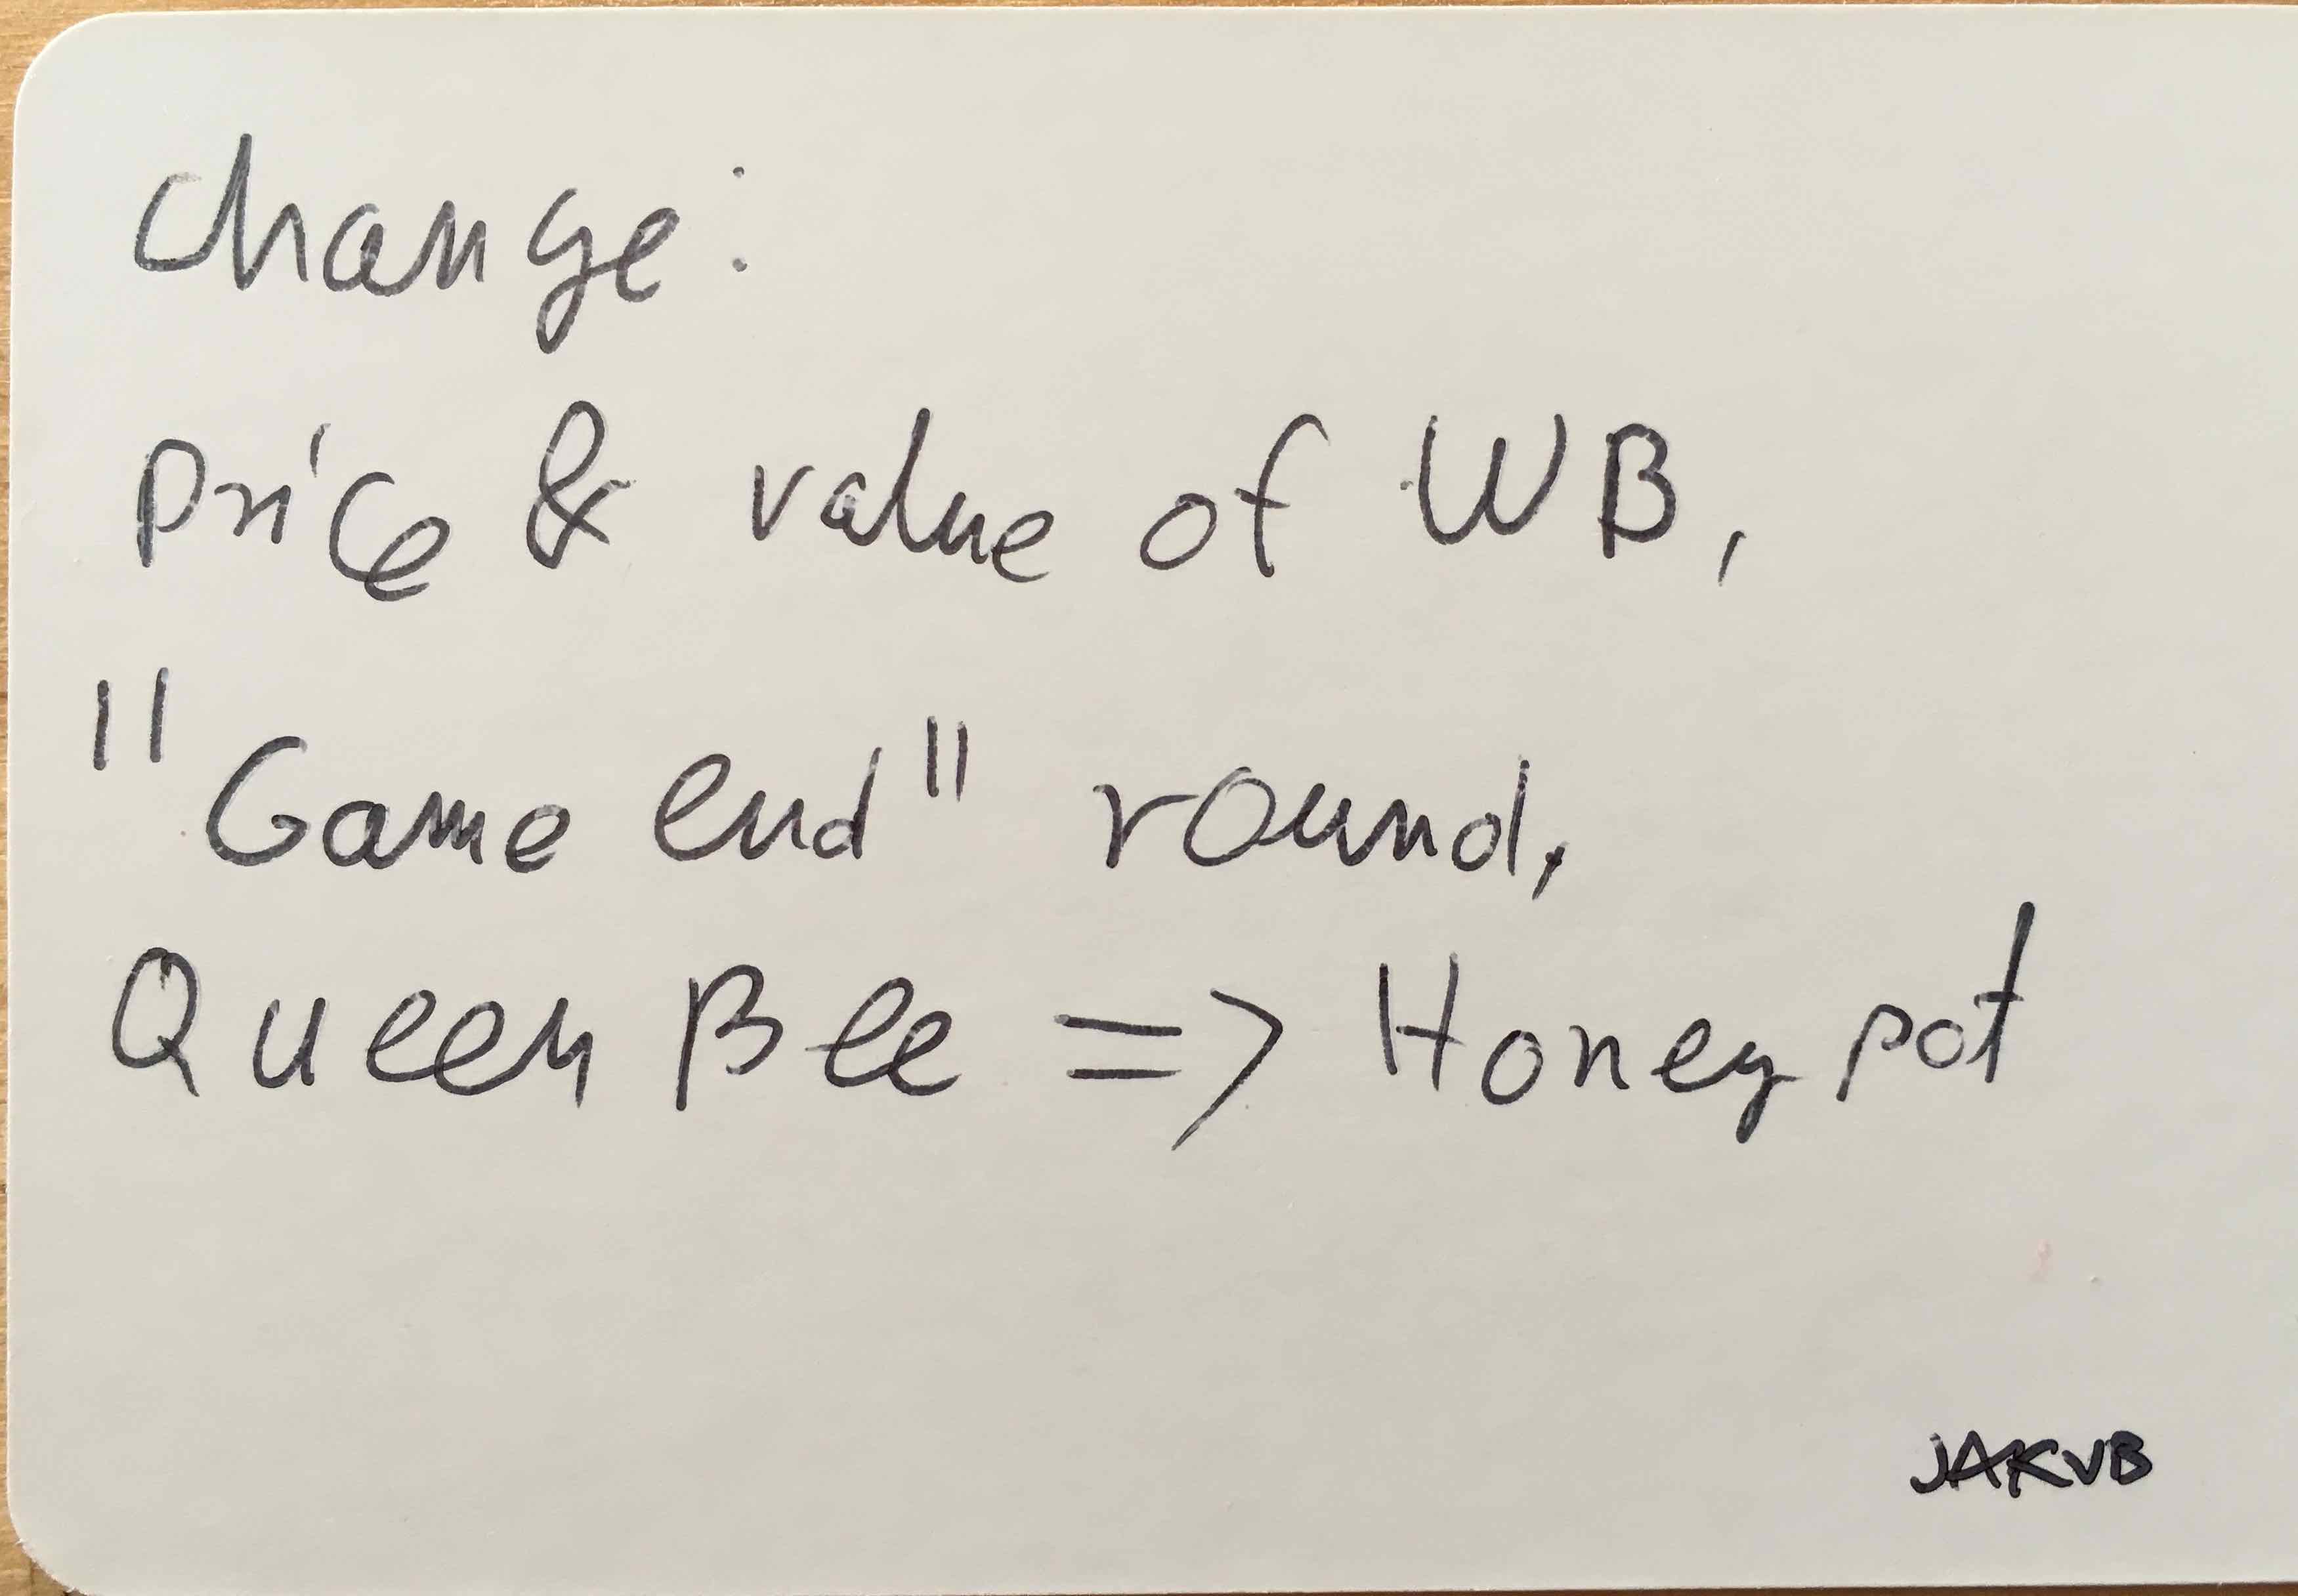 change:
price & value of WB,
"Game end" round,
Queen Bee => Honey pot
JAKUB